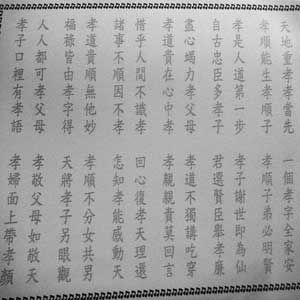 天地重孝孝當先
一個孝字全家安
孝順能生孝順子
孝順子弟必明賢
孝是人道第一步
孝子謝世即為仙
自古忠臣多孝子
君選賢臣舉孝廉
盡心竭力孝父母
孝道不獨講吃穿
孝道貴在心中孝
孝親親責莫回言
惜乎人間不識孝
回心復孝天理還
諸事不順因不孝
怎知孝能感動天
孝道貴順無他妙
孝順不分女共男
福祿皆由孝字得
天將孝子另眼觀
人人都可孝父母
孝敬父母如敬天
孝子口裡有孝語
孝婦面上帶孝顏